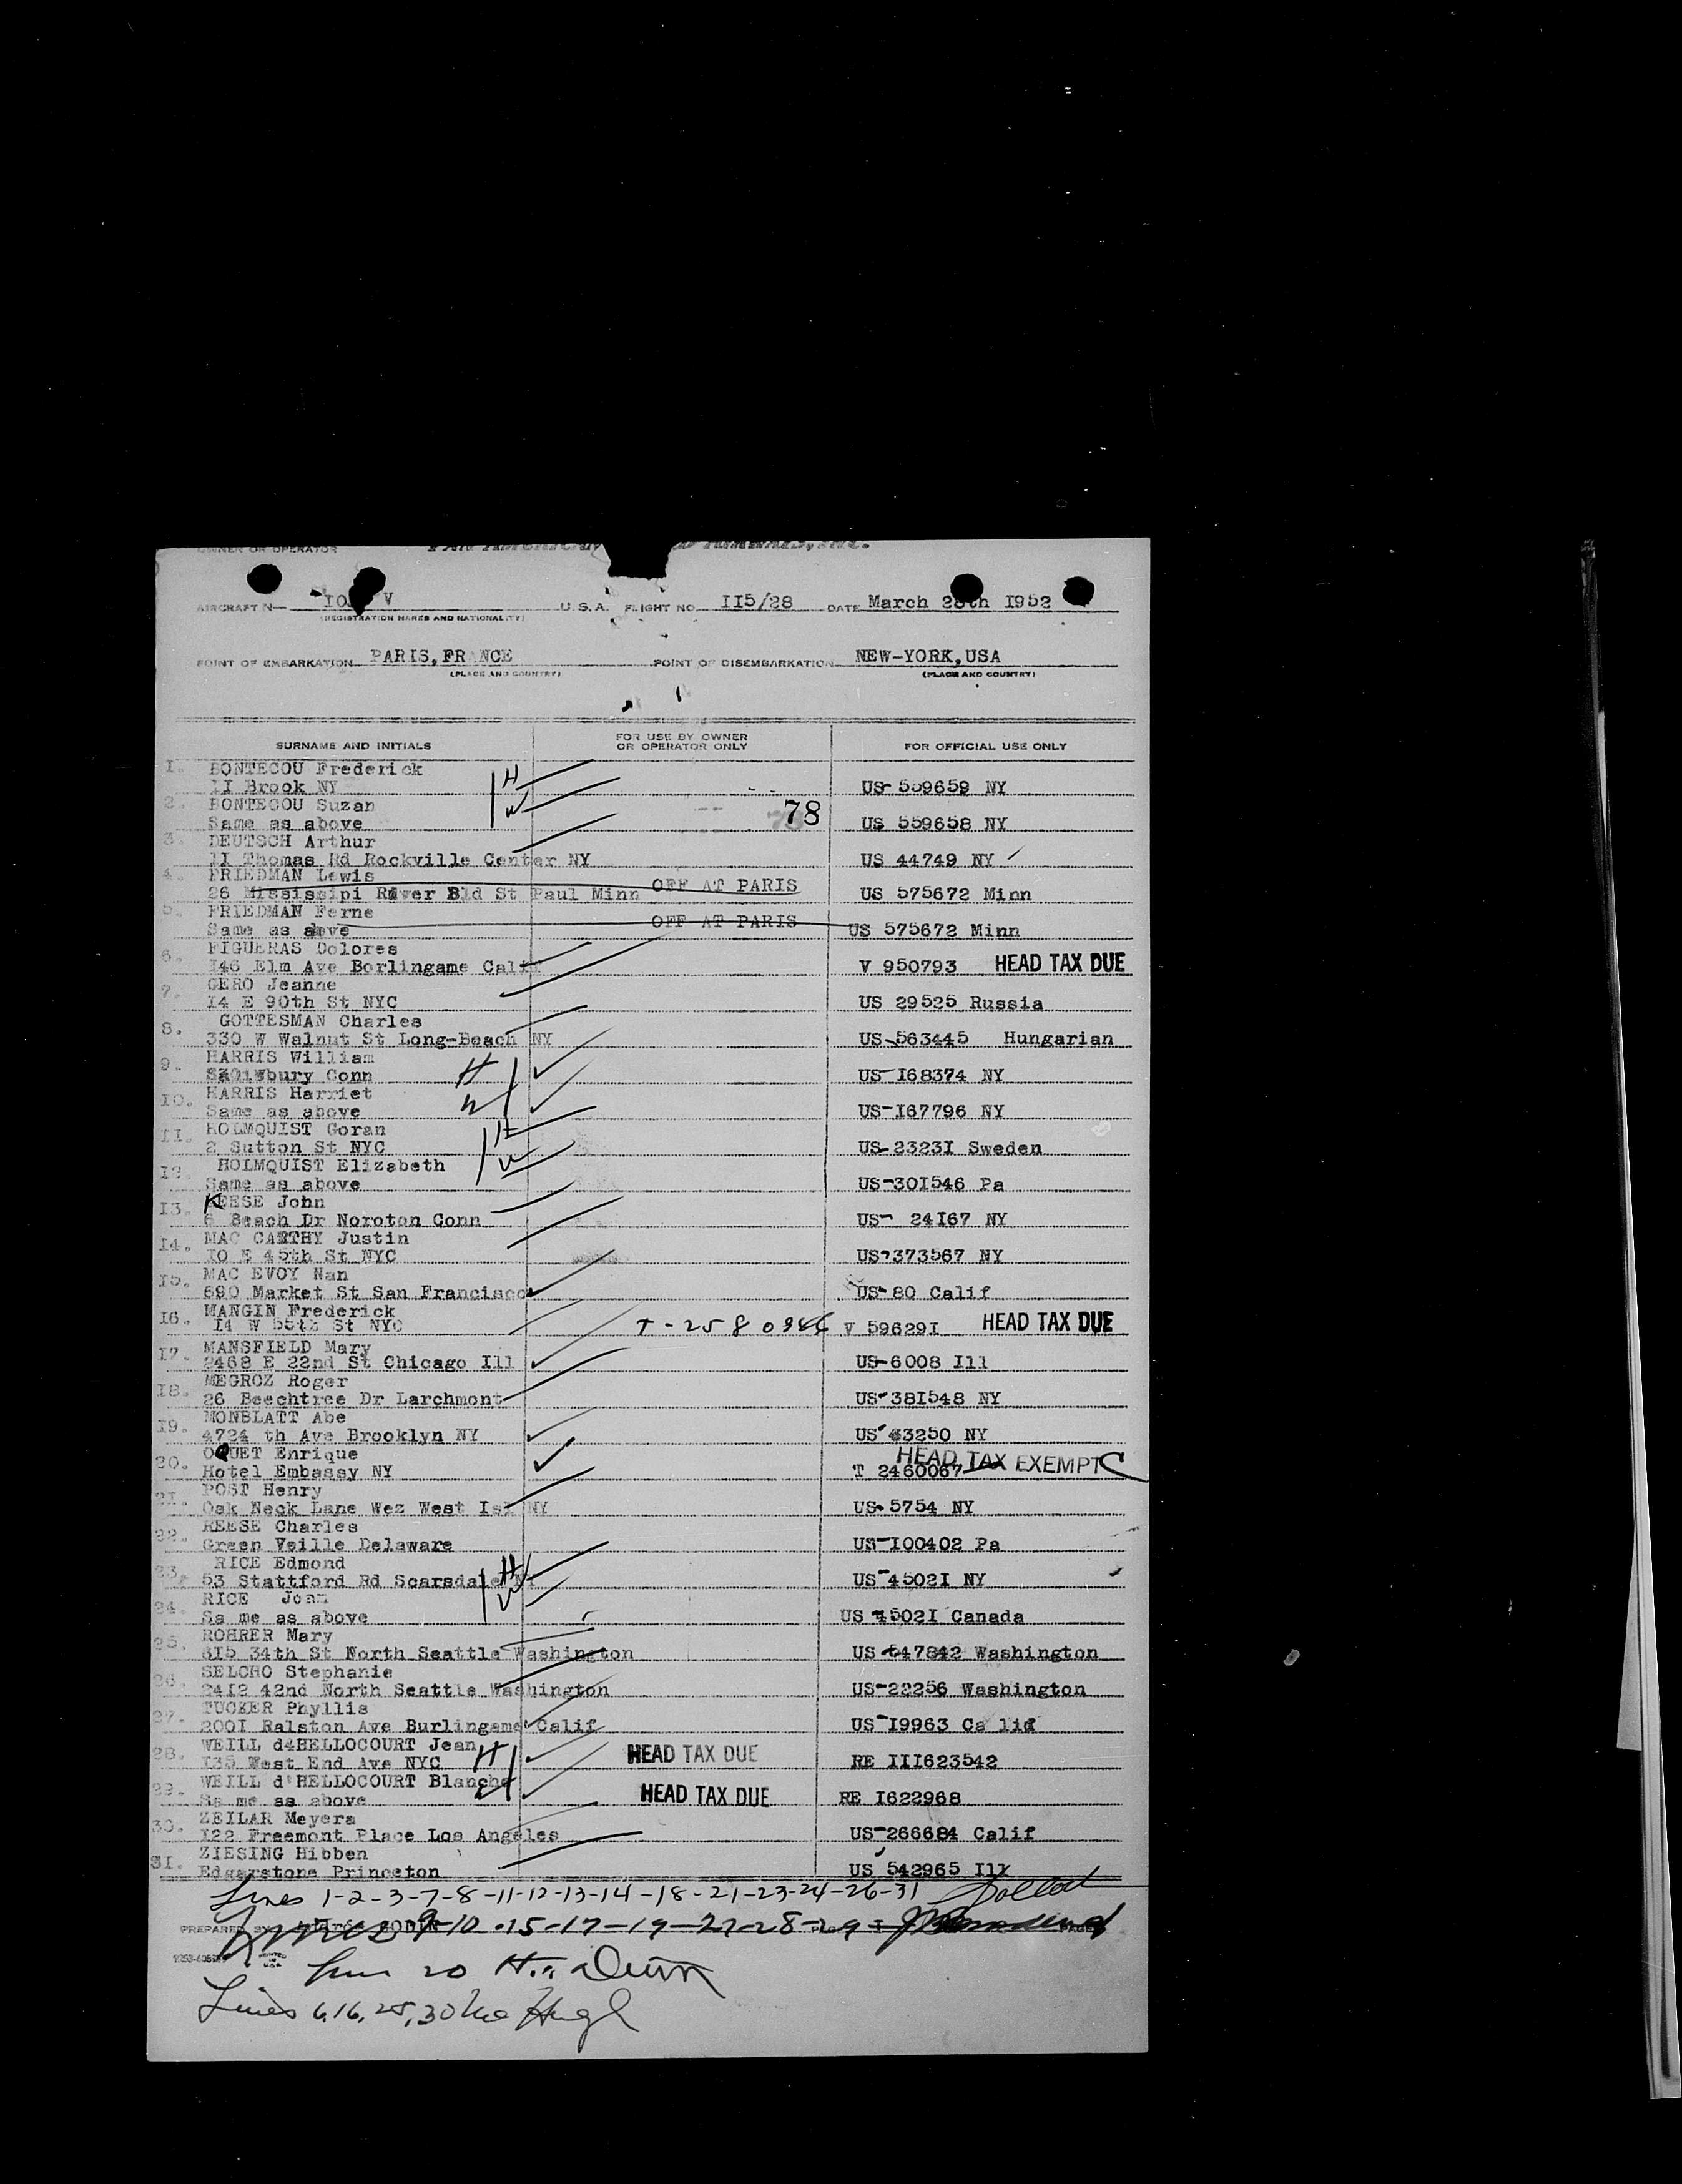 OWNER OR OPERATOR
AIRCRAFT N— V U.S.A. FLIGHT NO. II5/28 DATE March 28th I952
(REGISTRATION MARKS AND NATIONALITY)
POINT OF EMBARKATION PARIS, FRANCE POINT OF DISEMBARKATION NEW-YORK, USA
(PLACE AND COUNTRY) (PLACE AND COUNTRY)
SURNAME AND INITIALS FOR USE BY OWNER OR OPERATOR ONLY FOR OFFICIAL USE ONLY
I. BONTECOU Frederick H
II Brook NY US- 559659 NY
2. BONTECOU Suzan W 78
Same as above US 559658 NY
3. DEUTSCH Arthur
II Thomas Rd Rockville Center NY US 44749 NY
4. FRIEDMAN Lewis OFF AT PARIS
26 Mississipi River Bld St Paul Minn US 575672 Minn
5. FRIEDMAN Ferne OFF AT PARIS
Same as above US 575672 Minn
6. FIGUERAS Dolores
I46 Elm Ave Borlingame Calif V 950793 HEAD TAX DUE
7. GERO Jeanne
I4 E 90th St NYC US 29525 Russia
8. GOTTESMAN Charles
330 W Walnut St Long-Beach NY US-563445 Hungarian
9. HARRIS William H
Salisbury Conn US-I68374 NY
IO. HARRIS Harriet W
Same as above US-I67796 NY
II. HOLMQUIST Goran H
2 Sutton St NYC US-2323I Sweden
I2. HOLMQUIST Elizabeth W
Same as above US-30I546 Pa
I3. KEESE John
6 Beach Dr Noroton Conn US- 24I67 NY
I4. MAC CARTHY Justin
IO E 45th St NYC US-373567 NY
I5. MAC EVOY Nan
690 Market St San Francisco US-80 Calif
I6. MANGIN Frederick
I4 W 55th St NYC T-2580946 V 59629I HEAD TAX DUE
I7. MANSFIELD Mary
2468 E 22nd St Chicago Ill US-6008 Ill
I8. MEGROZ Roger
26 Beechtree Dr Larchmont US-38I548 NY
I9. MONBLATT Abe
4724 th Ave Brooklyn NY US 43250 NY
20. OQUET Enrique HEAD TAX EXEMPT C
Hotel Embassy NY T 2460067
2I. POST Henry
Oak Neck Lane Wez West Isl NY US-5754 NY
22. REESE Charles
Green Veille Delaware US-I00402 Pa
23. RICE Edmond H
53 Stattford Rd Scarsdale NY US-4502I NY
24. RICE Joan W
Sa me as above US 4502I Canada
25. ROHRER Mary
8I5 34th St North Seattle Washington US-547842 Washington
26. SELCHO Stephanie
24I2 42nd North Seattle Washington US-22256 Washington
27. TUCKER Phyllis
200I Ralston Ave Burlingame Calif US-I9963 Ca lif
28. WEILL d'HELLOCOURT Jean H HEAD TAX DUE
I35 West End Ave NYC RE III623542
29. WEILL d'HELLOCOURT Blanche W HEAD TAX DUE
Sa me as above RE I622968
30. ZEILAR Meyera
I22 Freemont Place Los Angeles US-266684 Calif
3I. ZIESING Hibben
Edgerstone Princeton US 542965 Ill
Lines 1-2-3-7-8-11-12-13-14-18-21-23-24-26-31
PREPARED BY
Lines 9-10-15-17-19-27-28-29
Line 20 H. Dunn
Lines 6, 16, 25, 30 Mc Hugh